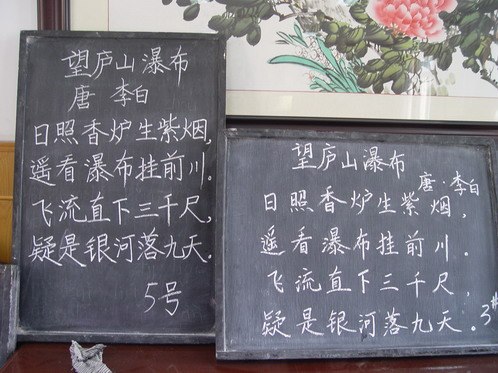 望庐山瀑布
唐 李白
日照香炉生紫烟,
遥看瀑布挂前川.
飞流直下三千尺,
疑是银河落九天.
5号
望庐山瀑布
唐·李白
日照香炉生紫烟,
遥看瀑布挂前川.
飞流直下三千尺,
疑是银河落九天.
3#